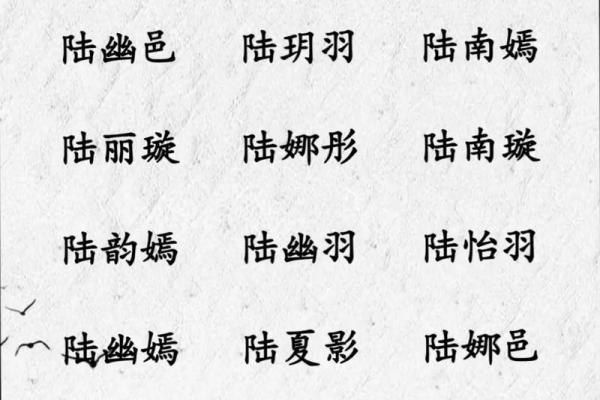 陆幽邑 陆玥羽 陆南嫣
陆丽璇 陆娜彤 陆南璇
陆韵嫣 陆幽羽 陆怡羽
陆幽嫣 陆夏影 陆娜邑